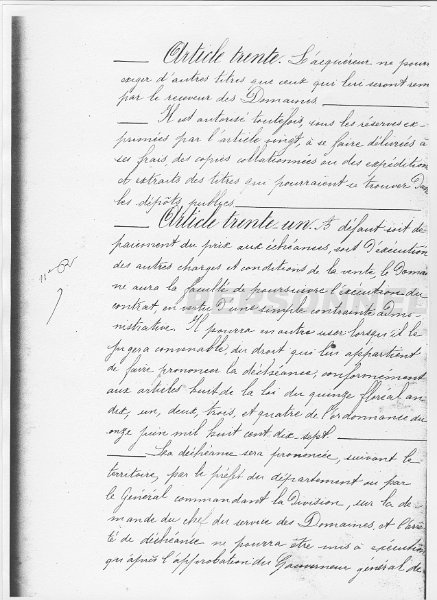 Article trente. L'acquéreur ne pourra
exiger d'autres titres que ceux qui lui seront remis
par le receveur des Domaines
Il est autorisé toutefois, sous les réserves ex-
primées par l'article vingt, à se faire délivrer à
ses frais, des copies collationnées ou des expéditions
et extraits des titres qui pourraient se trouver dans
les dépôts publics.
Article trente-un. A défaut soit de
paiement du prix aux échéances, soit d'exécution
des autres charges et conditions de la vente, le Domai
ne aura la faculté de poursuivre l'exécution du
contrat, en vertu d'une simple contrainte admi-
nistrative. Il pourra en outre user lorsqu'il le
jugera convenable, du droit qui lui appartient
de faire prononcer la déchéance, conformément
aux articles huit de la loi du quinze floréal an
dix, un, deux, trois, et quatre de l'ordonnance du
onze juin mil huit cent dix sept.
La déchéance sera prononcée, suivant le
territoire, par le préfet du département ou par
le Général commandant la Division, sur la de-
mande du chef de service des Domaines, et l'arrê
té de déchéance ne pourra être mis à exécution
qu'après l'approbation du Gouverneur général de
PERSONNEL